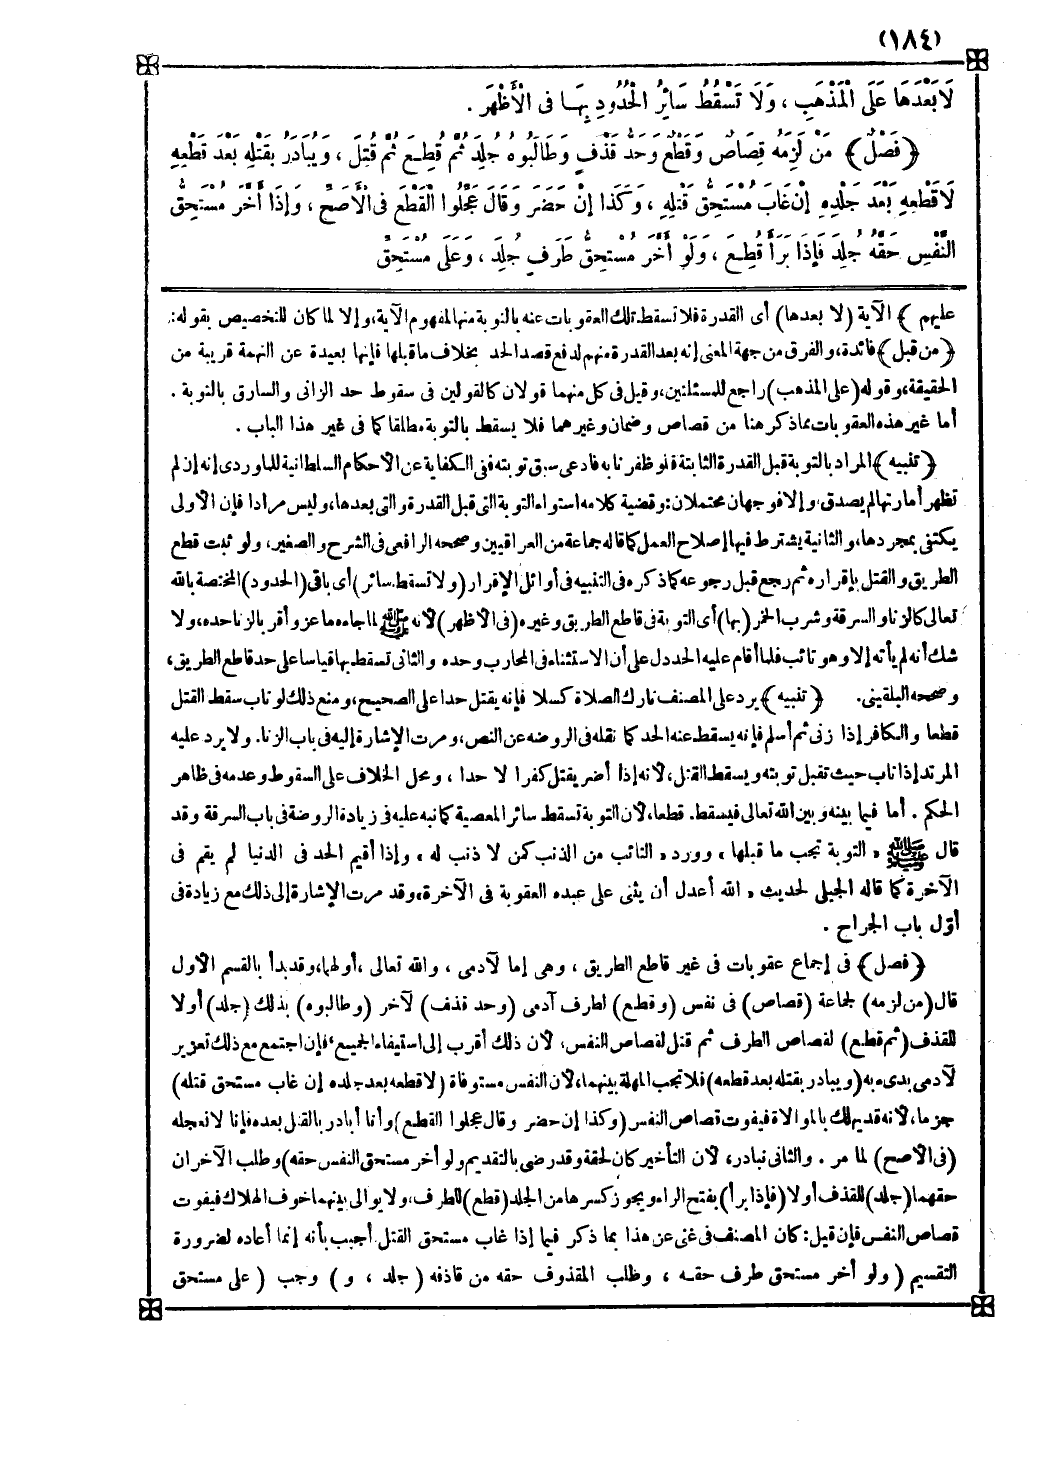 (١٨٤)
لَا بَعْدَهَا عَلَى الْمَذْهَبِ ، وَلَا تَسْقُطُ سَائِرُ الْحُدُودِ بِهَا فِى الْأَظْهَرِ .
﴿ فَصْلٌ ﴾ مَنْ لَزِمَهُ قِصَاصٌ وَقَطْعٌ وَحَدُّ قَذْفٍ وَطَالَبُوهُ جُلِدَ ثُمَّ قُطِعَ ثُمَّ قُتِلَ ، وَيُبَادَرُ بِقَتْلِهِ بَعْدَ قَطْعِهِ
لَا قَطْعِهِ بَعْدَ جَلْدِهِ إِنْ غَابَ مُسْتَحِقُّ قَتْلِهِ ، وَكَذَا إِنْ حَضَرَ وَقَالَ عَجِّلُوا الْقَطْعَ فِى الْأَصَحِّ ، وَإِذَا أَخَّرَ مُسْتَحِقُّ
النَّفْسِ حَقَّهُ جُلِدَ فَإِذَا بَرَأَ قُطِعَ ، وَلَوْ أَخَّرَ مُسْتَحِقُّ طَرَفٍ جُلِدَ ، وَعَلَى مُسْتَحِقِّ
عليهم ﴾ الآية (لا بعدها) أى القدرة فلا تسقط تلك العقوبات عنه بالتوبة منها لمفهوم الآية، وإلا لما كان للتخصيص بقوله:
﴿ من قبل ﴾ فائدة، والفرق من جهة المعنى إنه بعد القدرة متهم لدفع قصد الحد بخلاف ما قبلها فإنها بعيدة عن التهمة قريبة من
الحقيقة، وقوله (على المذهب) راجع للمسئلتين، وقيل فى كل منهما قولان كالقولين فى سقوط حد الزانى والسارق بالتوبة .
أما غير هذه العقوبات مما ذكر هنا من قصاص وضمان وغيرهما فلا يسقط بالتوبة مطلقا كما فى غير هذا الباب .
﴿ تنبيه ﴾ المراد بالتوبة قبل القدرة الثابتة فلو ظفرنا به فادعى سبق توبته ففى الكفاية عن الاحكام السلطانية للماوردى إنه إن لم
تظهر أمارتها لم يصدق، وإلا فوجهان محتملان: وقضية كلامه استواء التوبة التى قبل القدرة والتى بعدها، وليس مرادا فإن الأولى
يكتفى بمجردها، والثانية يشترط فيها إصلاح العمل كما قاله جماعة من العراقيين وصححه الرافعى فى الشرح والصغير، ولو ثبت قطع
الطريق والقتل بإقراره ثم رجع قبل رجوعه كما ذكره فى التنبيه فى أوائل الإقرار (ولا تسقط سائر) أى باقى (الحدود) المختصة بالله
تعالى كالزنا والسرقة وشرب الخمر (بها) أى التوبة فى قاطع الطريق وغيره (فى الأظهر) لأنه ﷺ لما جاءه ماعز وأقر بالزنا حده، ولا
شك أنه لم يأته إلا وهو تائب فلما أقام عليه الحد دل على أن الاستثناء فى المحارب وحده والثانى تسقط بها قياسا على حد قاطع الطريق،
وصححه البلقينى. ﴿ تنبيه ﴾ يرد على المصنف تارك الصلاة كسلا فإنه يقتل حدا على الصحيح، ومنع ذلك لو تاب سقط القتل
قطعا والكافر إذا زنى ثم أسلم فإنه يسقط عنه الحد كما نقله فى الروضه عن النص، ومرت الإشارة إليه فى باب الزنا. ولا يرد عليه
المرتد إذا تاب حيث تقبل توبته ويسقط القتل، لأنه إذا أضر يقتل كفرا لا حدا ، ومحل الخلاف على السقوط وعدمه فى ظاهر
الحكم . أما فيما بينه وبين الله تعالى فيسقط. قطعا، لان التوبة تسقط سائر المعصية كما نبه عليه فى زيادة الروضة فى باب السرقة وقد
قال ﷺ « التوبة تجب ما قبلها » وورد « التائب من الذنب كمن لا ذنب له » وإذا أقيم الحد فى الدنيا لم يقم فى
الآخرة كما قاله الجيلى لحديث « الله أعدل أن يثنى على عبده العقوبة فى الآخرة، وقد مرت الإشارة إلى ذلك مع زيادة فى
أوّل باب الجراح .
﴿ فصل ﴾ فى إجماع عقوبات فى غير قاطع الطريق ، وهى إما لآدمى ، والله تعالى ،أولهما، وقد بدأ بالقسم الأول
قال (من لزمه) لجماعة (قصاص) فى نفس (وقطع) لطرف آدمى (وحد قذف) لآخر (وطالبوه) بذلك (جلد) أولا
للقذف (ثم قطع) لقصاص الطرف ثم قتل لقصاص النفس، لأن ذلك أقرب إلى استيفاء الجميع، فإن اجتمع مع ذلك تعزير
لآدمى بدىء به (ويبادر بقتله بعد قطعه) فلا تجب المهلة بينهما، لأن النفس مستوفاة (لا قطعه بعد جلده إن غاب مستحق قتله)
جزما، لأنه قد يهلك بالموالاة فيفوت قصاص النفس (وكذا إن حضر وقال عجلوا القطع) وأنا أبادر بالقتل بعده فإنا لا نعجله
(فى الأصح) لما مر . والثانى نبادر، لأن التأخير كان لحقه وقد رضى بالتقديم ولو أخر مستحق النفس حقه) وطلب الآخران
حقهما (جلد) للقذف أولا (فإذا برأ) بفتح الراء ويجوز كسرها من الجلد (قطع) للطرف، ولا يوالى بينهما خوف الهلاك فيفوت
قصاص النفس فإن قيل: كان المصنف فى غنى عن هذا بما ذكر فيما إذا غاب مستحق القتل. أجيب بأنه إنما أعاده لضرورة
التقسيم ( ولو أخر مستحق طرف حقه ، وطلب المقذوف حقه من قاذفه ( جلد ، و ) وجب ( على مستحق